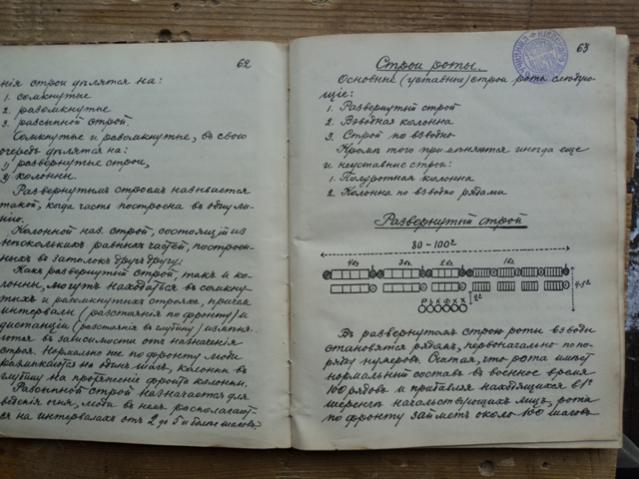 62
нія строи дѣлятся на:
1. сомкнутые
2. разомкнутые
3. разсыпной строй.
Сомкнутые и разомкнутые, въ свою
очередь дѣлятся на:
1) развернутые строи,
2) колонны.
Развернутымъ строемъ называется
такой, когда часть построена въ одну ли-
нію.
Колонной наз. строй, состоящій изъ
нѣсколькихъ равныхъ частей, построен-
ныхъ въ затылокъ другъ другу.
Какъ развернутый строй, такъ и ко-
лонны, могутъ находиться въ сомкну-
тыхъ и разомкнутыхъ строяхъ, причемъ
интервалы (разстоянія по фронту) и
дистанціи (разстоянія въ глубину) измѣня-
ются въ зависимости отъ назначенія
строя. Нормально же по фронту люди
размыкаются на одинъ шагъ, колонны въ
глубину на протяженіе фронта колонны.
Разсыпной строй назначается для
веденія огня, люди въ немъ располагают-
ся на интервалахъ отъ 2 до 5 и болѣе шаговъ.
63
Строи роты.
Основные (уставные) строи роты слѣдую-
щіе:
1. Развернутый строй
2. Взводная колонна
3. Строй по взводно
Кромѣ того примѣняются иногда еще
и неуставные строи:
1. Полуротная колонна
2. Колонна по взводно рядами
Развернутый строй
80-100
4в. 3в. 2в. 1в.
Въ развернутомъ строю роты взводы
становятся рядомъ, первоначально по по-
рядку нумеровъ. Считая, что рота имѣетъ
нормальный составъ въ военное время
100 рядовъ и прибавляя находящихся въ 1й
шеренгѣ начальствующихъ лицъ, рота
по фронту займетъ около 100 шаговъ